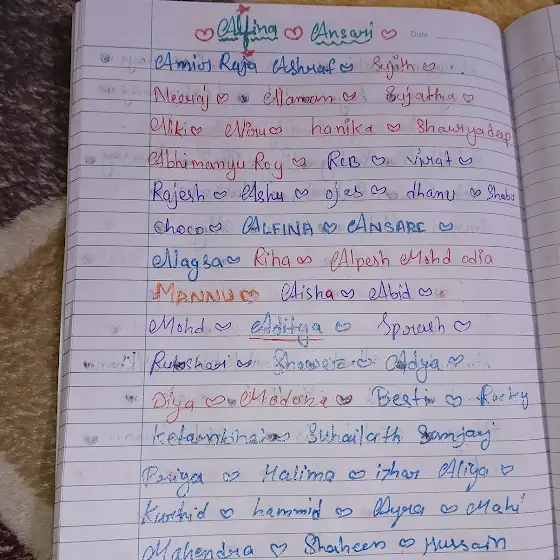 ♡ Alfina ♡ Ansari ♡ Date
Amir Raja Ashraf ♡ Sujith ♡
Neeraj ♡ Mamam ♡ Sujatha ♡
Niki ♡ Niru ♡ hanika ♡ Shauryadeep
Abhimanyu Roy ♡ RCB ♡ Virat ♡
Rajesh ♡ Ashu ♡ ojas ♡ dhanu ♡ Shabu
choco ♡ ALFINA ♡ ANSARI ♡
Nagsa ♡ Riha ♡ Alpesh Mohd odia
MANNU ♡ Aisha ♡ Abid ♡
Mohd ♡ Aditya ♡ Sparsh ♡
♡ ♡ Adya ♡
Diya ♡ ♡ Best ♡ Rocky
Suhailath Samjay
Priya ♡ Halima ♡ izhar Aliya ♡
Kurshid ♡ hammid ♡ Ayra ♡ Mahi
Mahendra ♡ Shaheen ♡ Hussain